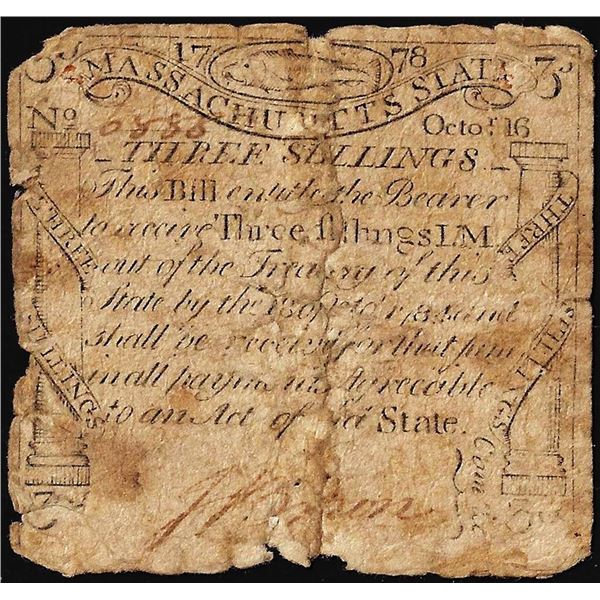 3s 1778 3s
MASSACHUSETTS STATE
No 0888 Octor. 16
THREE SHILLINGS
This Bill entitle the Bearer
to receive Three shillings LM
out of the Treasury of this
State by the and
shall be received for that sum
in all payments Agreeable
to an Act of sd State.
THREE SHILLINGS
THREE SHILLINGS
Comtee